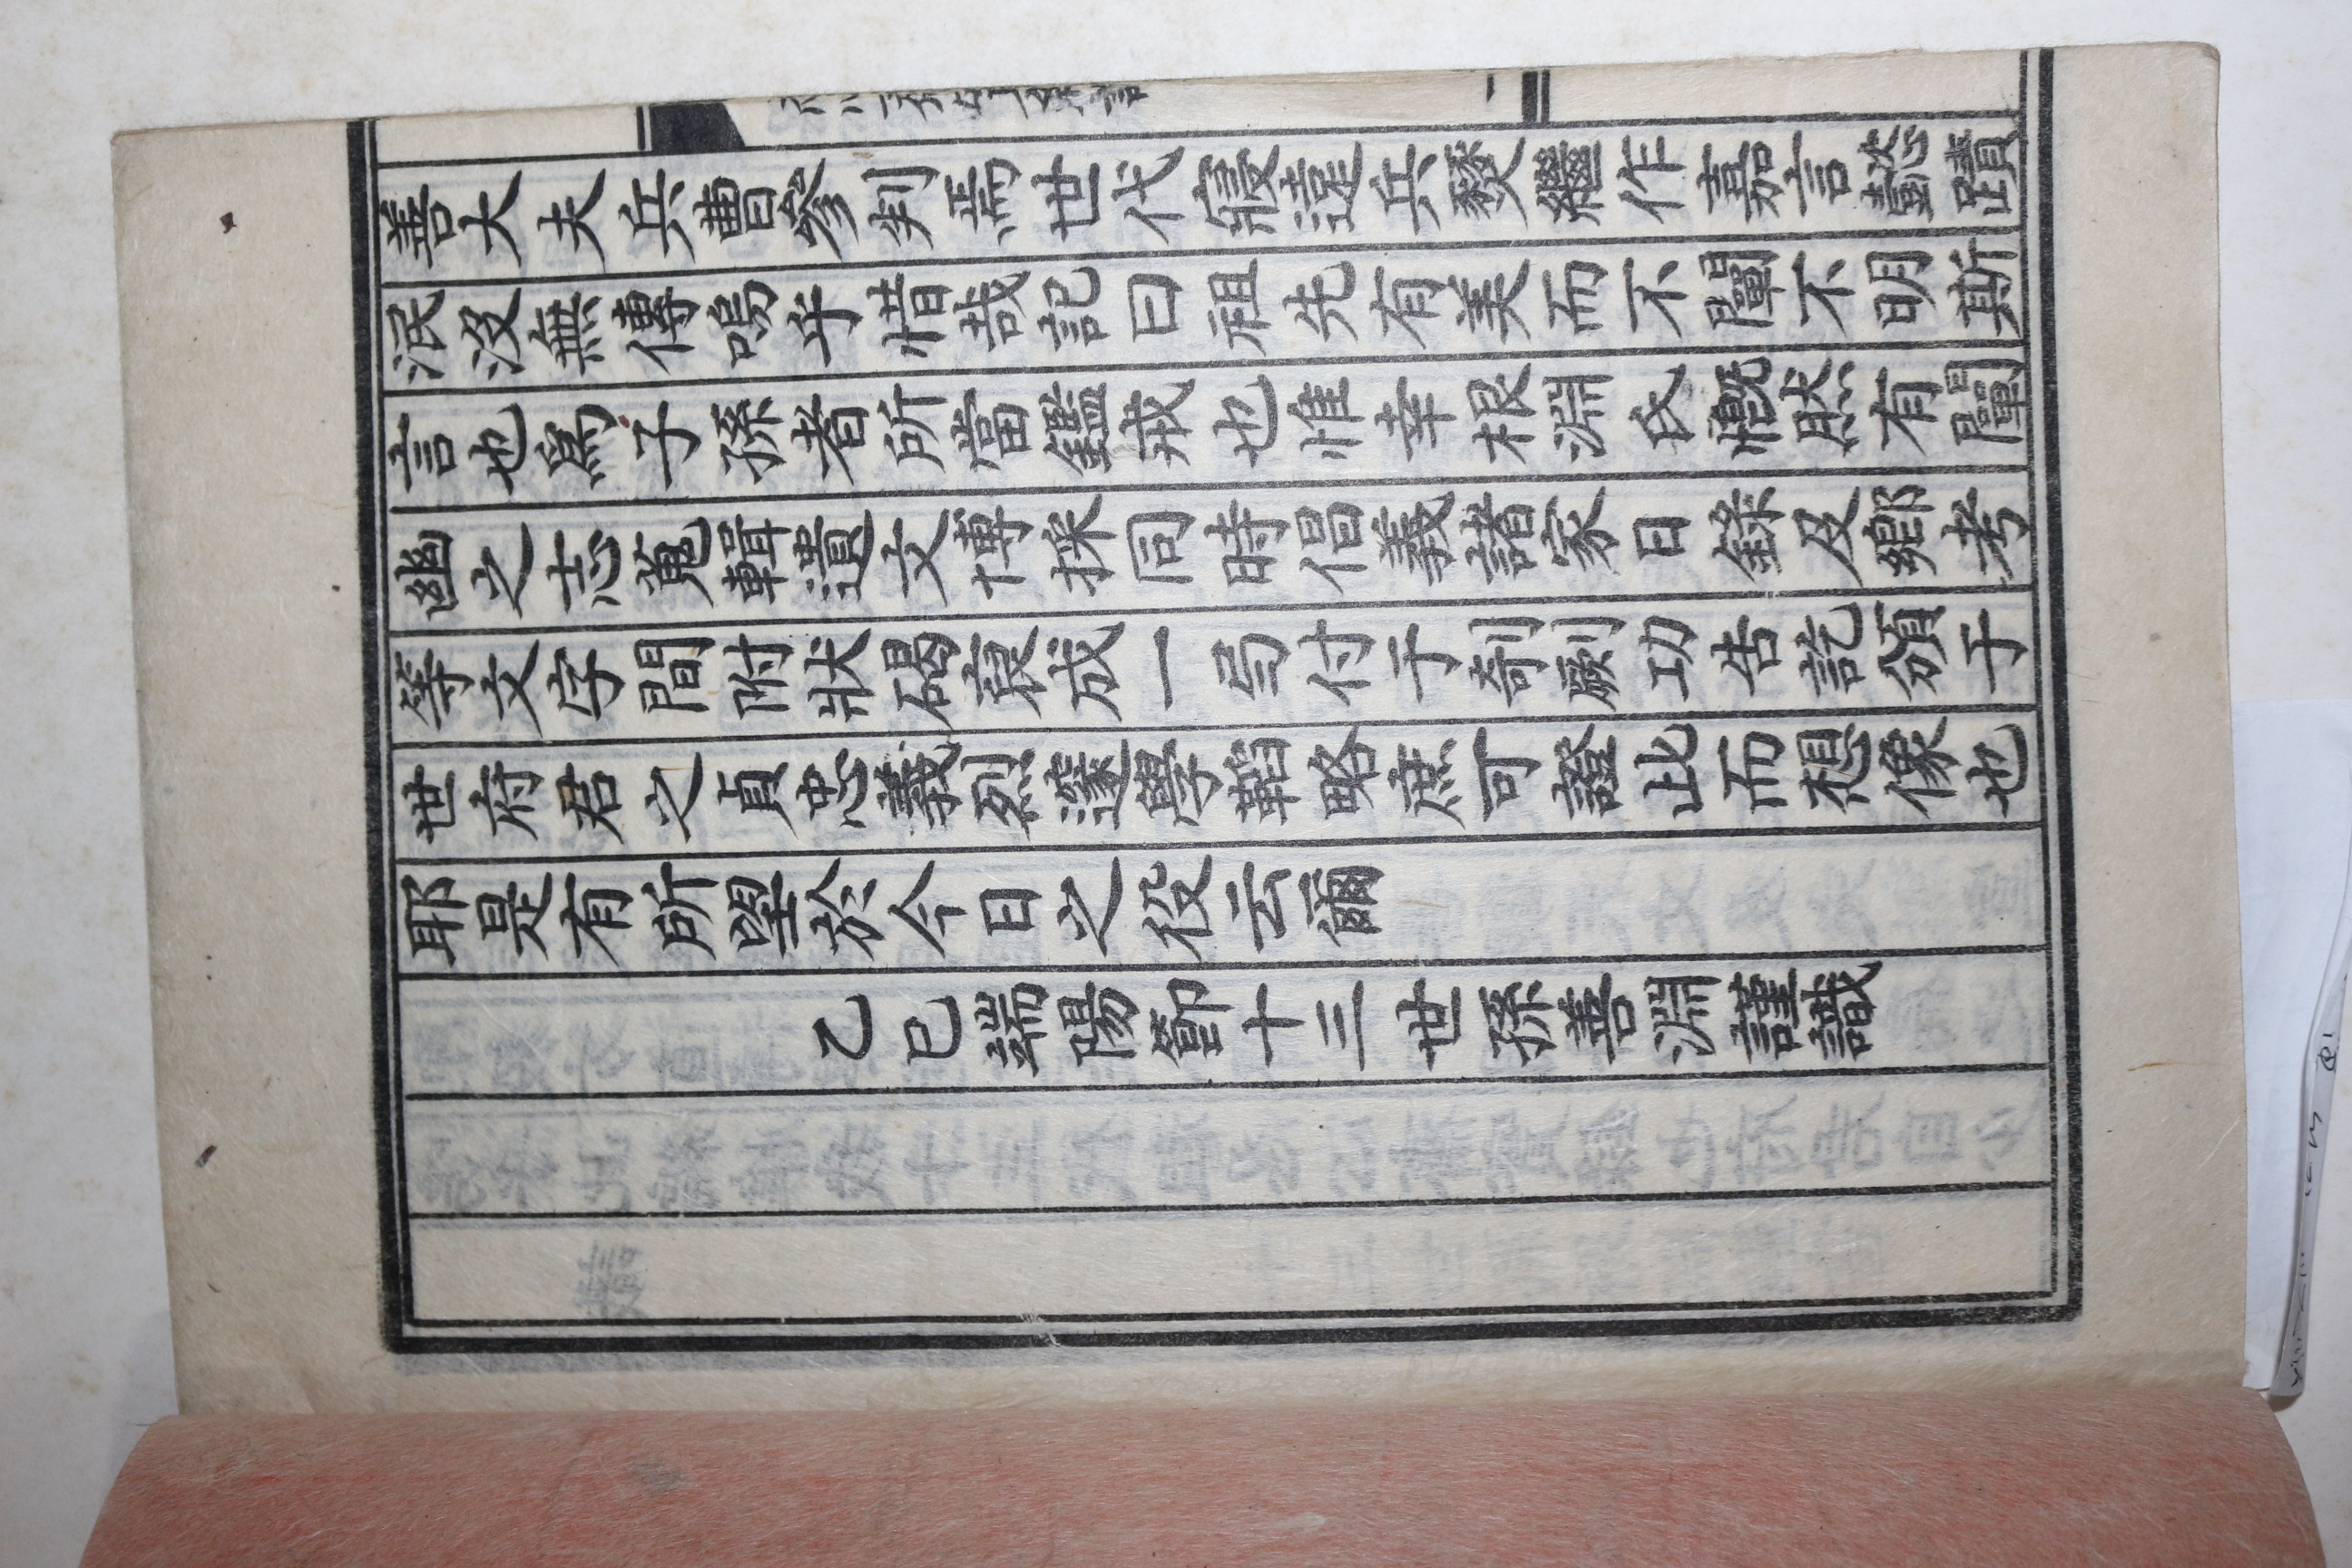 善大夫兵曹參判焉世代寖遠兵燹繼作嘉言懿蹟
泯沒無傳嗚乎惜哉記曰祖先有美而不闡不明斯
言也爲子孫者所當鑑戒也惟幸根淵氏慨然有闡
幽之志蒐輯遺文博採同時倡義諸家日錄及鄕考
等文字間附狀碣裒成一弓付于剞劂功告訖頒于
世府君之貞忠義烈邃學韜略庶可證此而想像也
耶是有所望於今日之役云爾
乙巳端陽節十三世孫善淵謹識